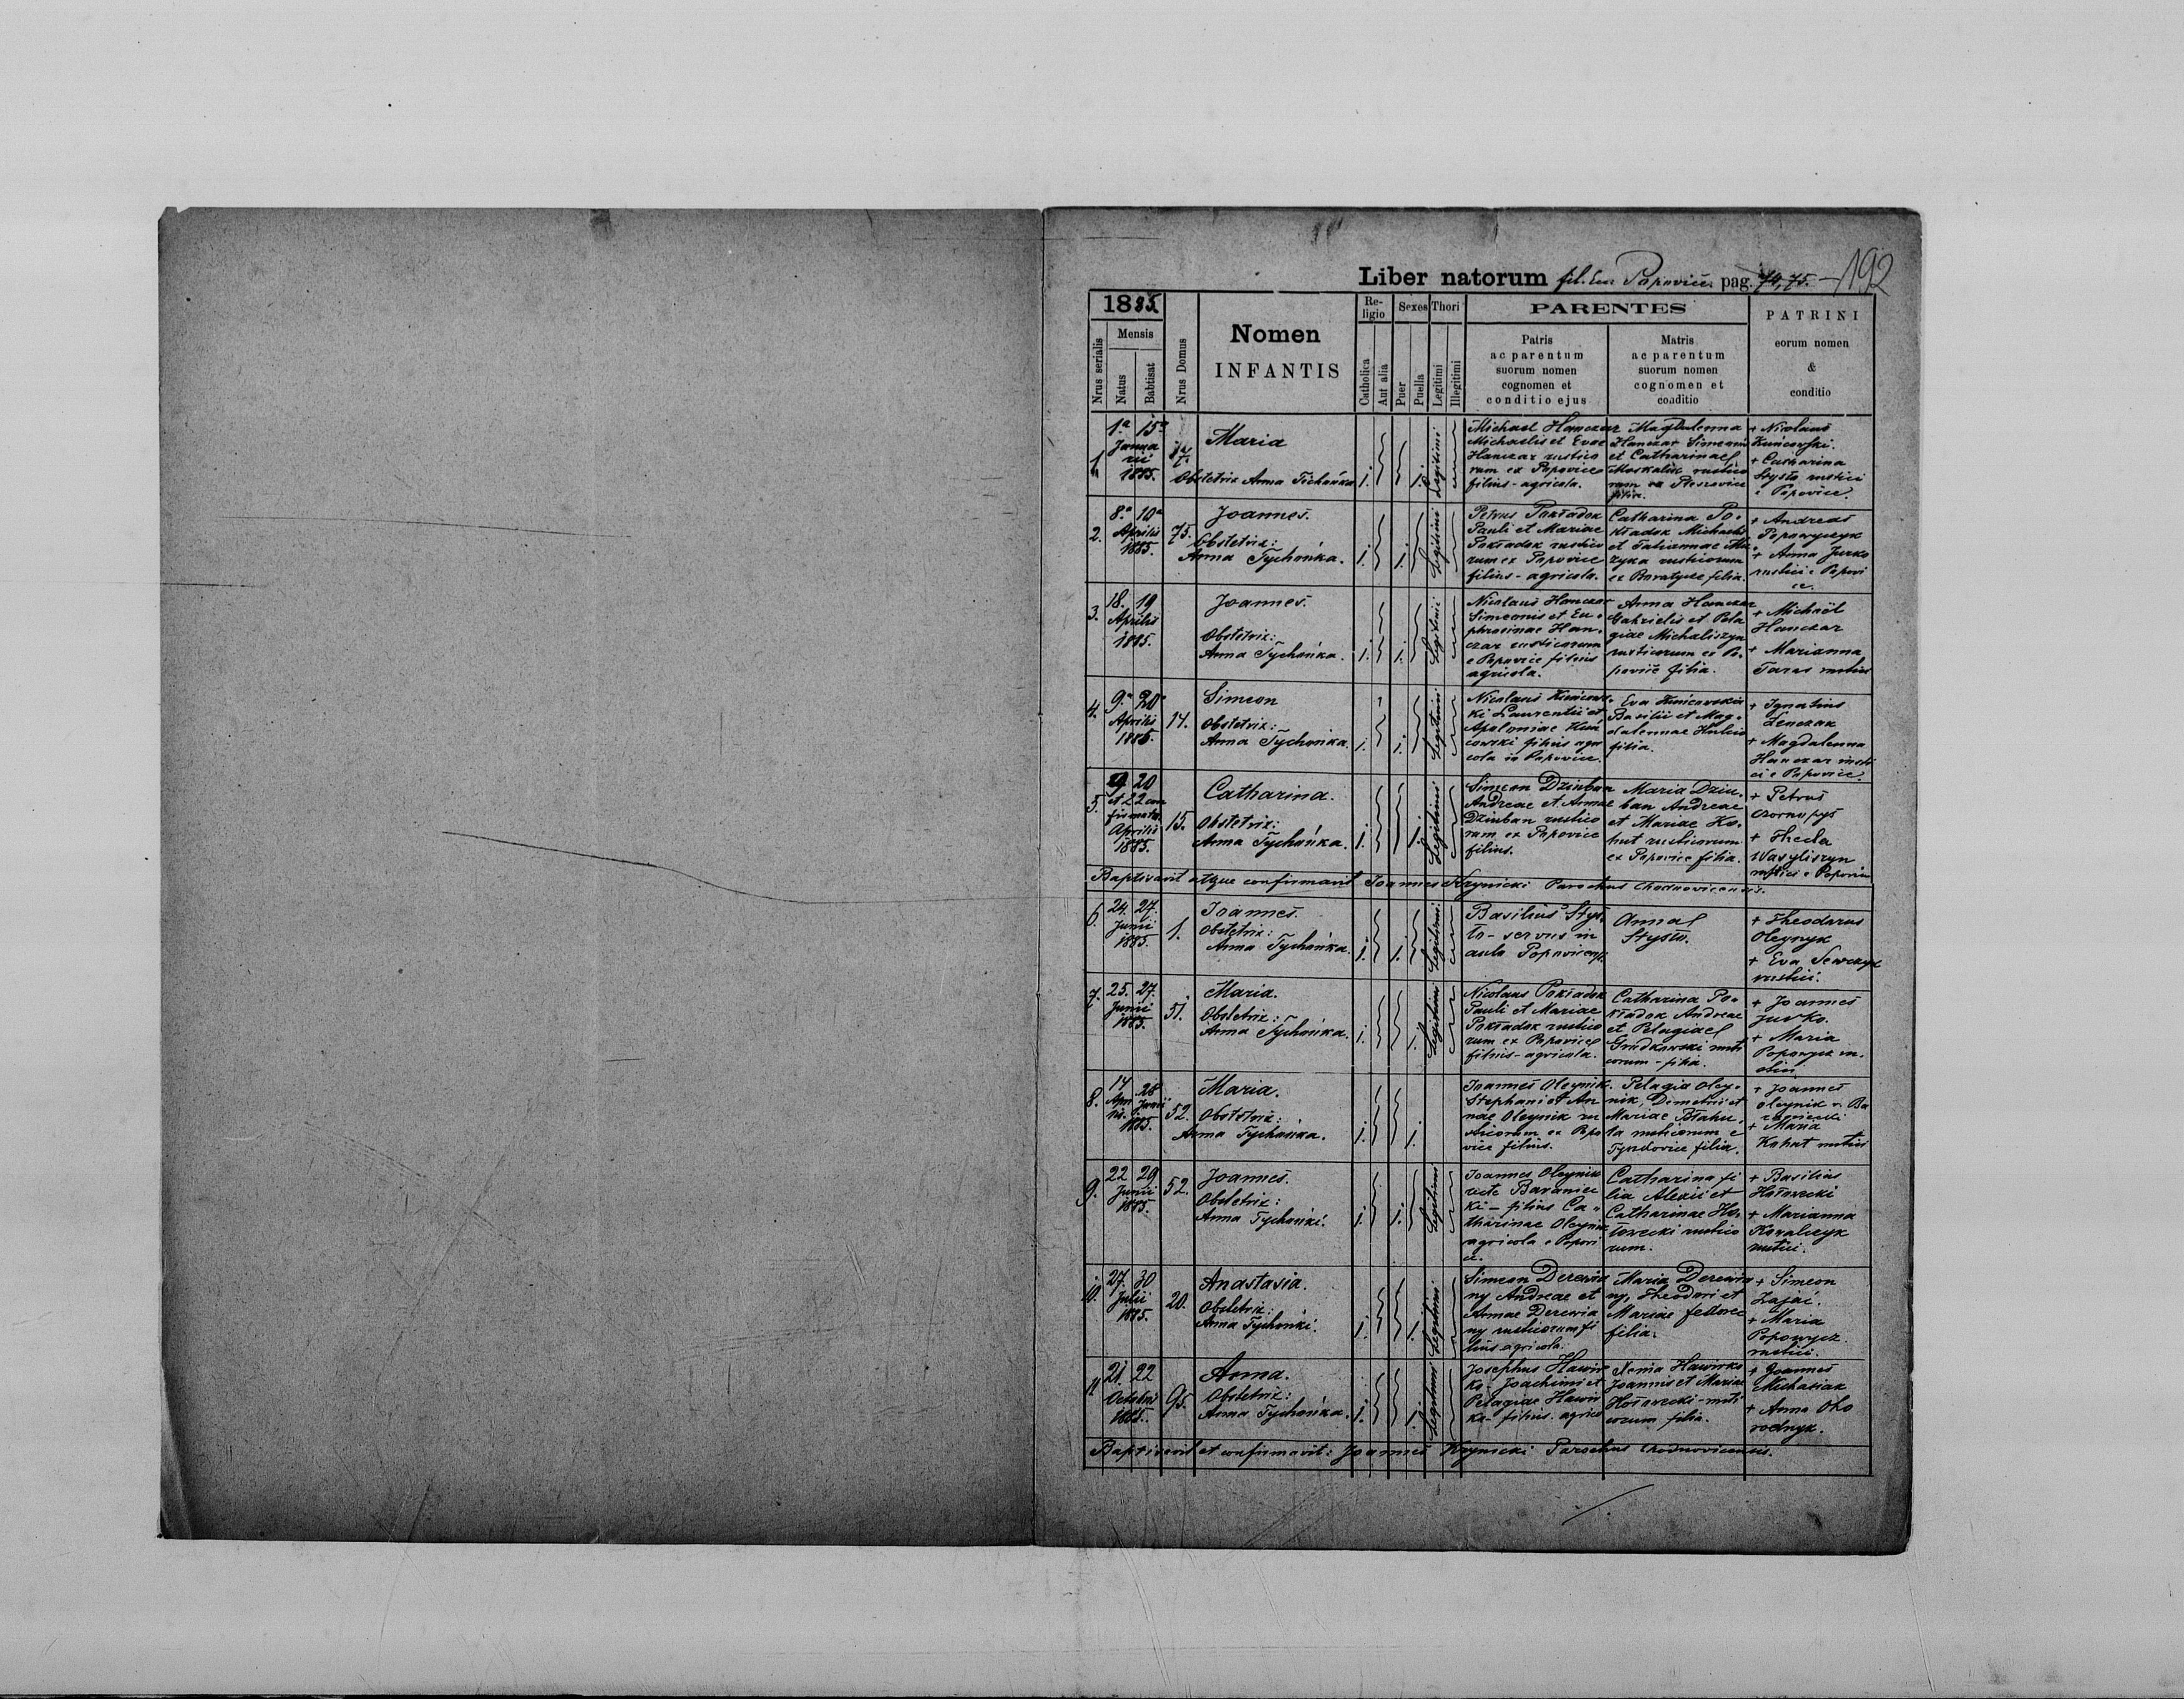 Liber natorum fil. Ecc. Popovice pag. 74, 75. 192
1885
Nrus serialis
Mensis
Natus
Babtisat
Nrus Domus
Nomen
INFANTIS
Religio
Catholica
Aut alia
Sexes
Puer
Puella
Thori
Legitimi
Illegitimi
PARENTES
Patris
ac parentum
suorum nomen
cognomen et
conditio ejus
Matris
ac parentum
suorum nomen
cognomen et
conditio
PATRINI
eorum nomen
&
conditio
1. 1a 15a
Janua
rii
1885.
Maria
Obstetrix Anna Tichońka
1. 1.
Legitimi
Michael Hanczar
Michaelis et Evae
Hanczar rustico
rum ex Popovice
filius - agricola.
Magdalenna
Hanczar Simeonis
et Catharinae
Moskalik rustico
rum ex
filia.
+ Nicolaus
Kuńcowski.
+ Catharina
Stysło rustici
e Popovice.
2. 8a 10a
Aprilis
1885.
75.
Joannes.
Obstetrix:
Anna Tychońka.
1. 1.
Legitimi
Petrus Pokładok
Pauli et Mariae
Pokładok rustico
rum ex Popovice
filius - agricola.
Catharina Po-
kładok Michaelis
et Tatiannae
rustiorum
ex filia.
+ Andreas
Popowyczyk
+ Anna Jurko
rustici e Popovi
ce.
3. 18. 19
Aprilis
1885.
Joannes.
Obstetrix:
Anna Tychońka.
1. 1.
Legitimi
Nicolaus Hanczar
Simeonis et Eu-
phrosinae Han-
czar rusticorum
e Popovice filius
agricola.
Anna Hanczar
Gabrielis et Pela
giae Michaliszyn
rusticorum ex Po-
povice filia.
+ Michaël
Hanczar
+ Marianna
Taras rustici
4. 9a 20a
Aprilis
1885.
14.
Simeon
Obstetrix:
Anna Tychońka.
1. 1.
Legitimi
Nicolaus Kuńcows-
ki Laurentii et
Apoloniae Kuń
cowski filius agri
cola in Popovice.
Eva Kuńcowskia
Basilii et Mag-
dalennae
filia.
+ Ignatius
+ Magdalenna
Hanczar rusti
ci e Popovice.
5. 9 20
et 22 con
firmata
Aprilis
1885.
15.
Catharina.
Obstetrix:
Anna Tychońka.
1. 1.
Legitimi
Simeon Dziuban
Andreae et Annae
Dziuban rustico
rum ex Popovice
filius.
Maria Dziu-
ban Andreae
et Mariae Ko-
hut rusticorum
ex Popovice filia.
+ Petrus
Czornopys
+ Thecla
Wasyliszyn
rustici e Popovice
Baptisavit atque confirmavit Joannes Krynicki Parochus Chodnovicensis.
6. 24. 27.
Junii
1885.
1.
Joannes.
Obstetrix:
Anna Tychońka.
1. 1.
Legitimi
Basilius Stys-
ło - servus in
aula Popovicensi.
Anna
Stysło.
+ Theodorus
Oleynyk
+ Eva
rustici.
7. 25. 27.
Junii
1885.
51.
Maria.
Obstetrix:
Anna Tychońka.
1. 1.
Legitimi
Nicolaus Pokładok
Pauli et Mariae
Pokładok rustico
rum ex Popovice
filius - agricola.
Catharina Po-
kładok Andreae
et Pelagiae
Gradkowski rusti
corum - filia.
+ Joannes
Jurko.
+ Maria
Popowycz ru-
stici
8. 14 28
Junii
1885.
52.
Maria.
Obstetrix:
Anna Tychońka.
1. 1.
Joannes Oleynik
Stephani et An
nae Oleynik ru
sticorum ex Popo
vice filius.
Pelagia Oley-
nik, Demetrii et
Mariae Błahu-
ta rusticorum e
filia.
+ Joannes
Oleynik v. Ba
raniecki
+ Maria
Kohut rustici
9. 22 29
Junii
1885.
52.
Joannes.
Obstetrix:
Anna Tychońki.
1. 1.
Legitimi
Joannes Oleynik
recte Baraniec
ki - filius Ca-
tharinae Oleynik
agricola e Popovi
ce.
Catharina fi
lia Alexii et
Catharinae Ho-
łowecki rustico
rum.
+ Basilius
Hołowecki
+ Marianna
Kowalczyk
rustici.
10. 27. 30
Julii
1885.
20.
Anastasia.
Obstetrix:
Anna Tychońki.
1. 1.
Legitimi
Simeon Derewia
ny Andreae et
Annae Derewia
ny rusticorum fi
lius agricola.
Maria Derewia
ny, Theodori et
Mariae Fedorec
filia.
+ Simeon
Zająć.
+ Maria
Popowycz
rustici.
11. 21. 22
Octobris
1885.
95.
Anna.
Obstetrix:
Anna Tychońka.
1. 1.
Legitimi
Josephus Hawir
ko Joachimi et
Pelagiae Hawir
ko - filius - agrico
Hawirko
Joannis et Mariae
Hołowecki - rusti
corum filia.
+ Joannes
Michasiak
+ Anna Oho
rodnyk.
Baptisavit et confirmavit: Joannes Krynicki Parochus Chodnovicensis.